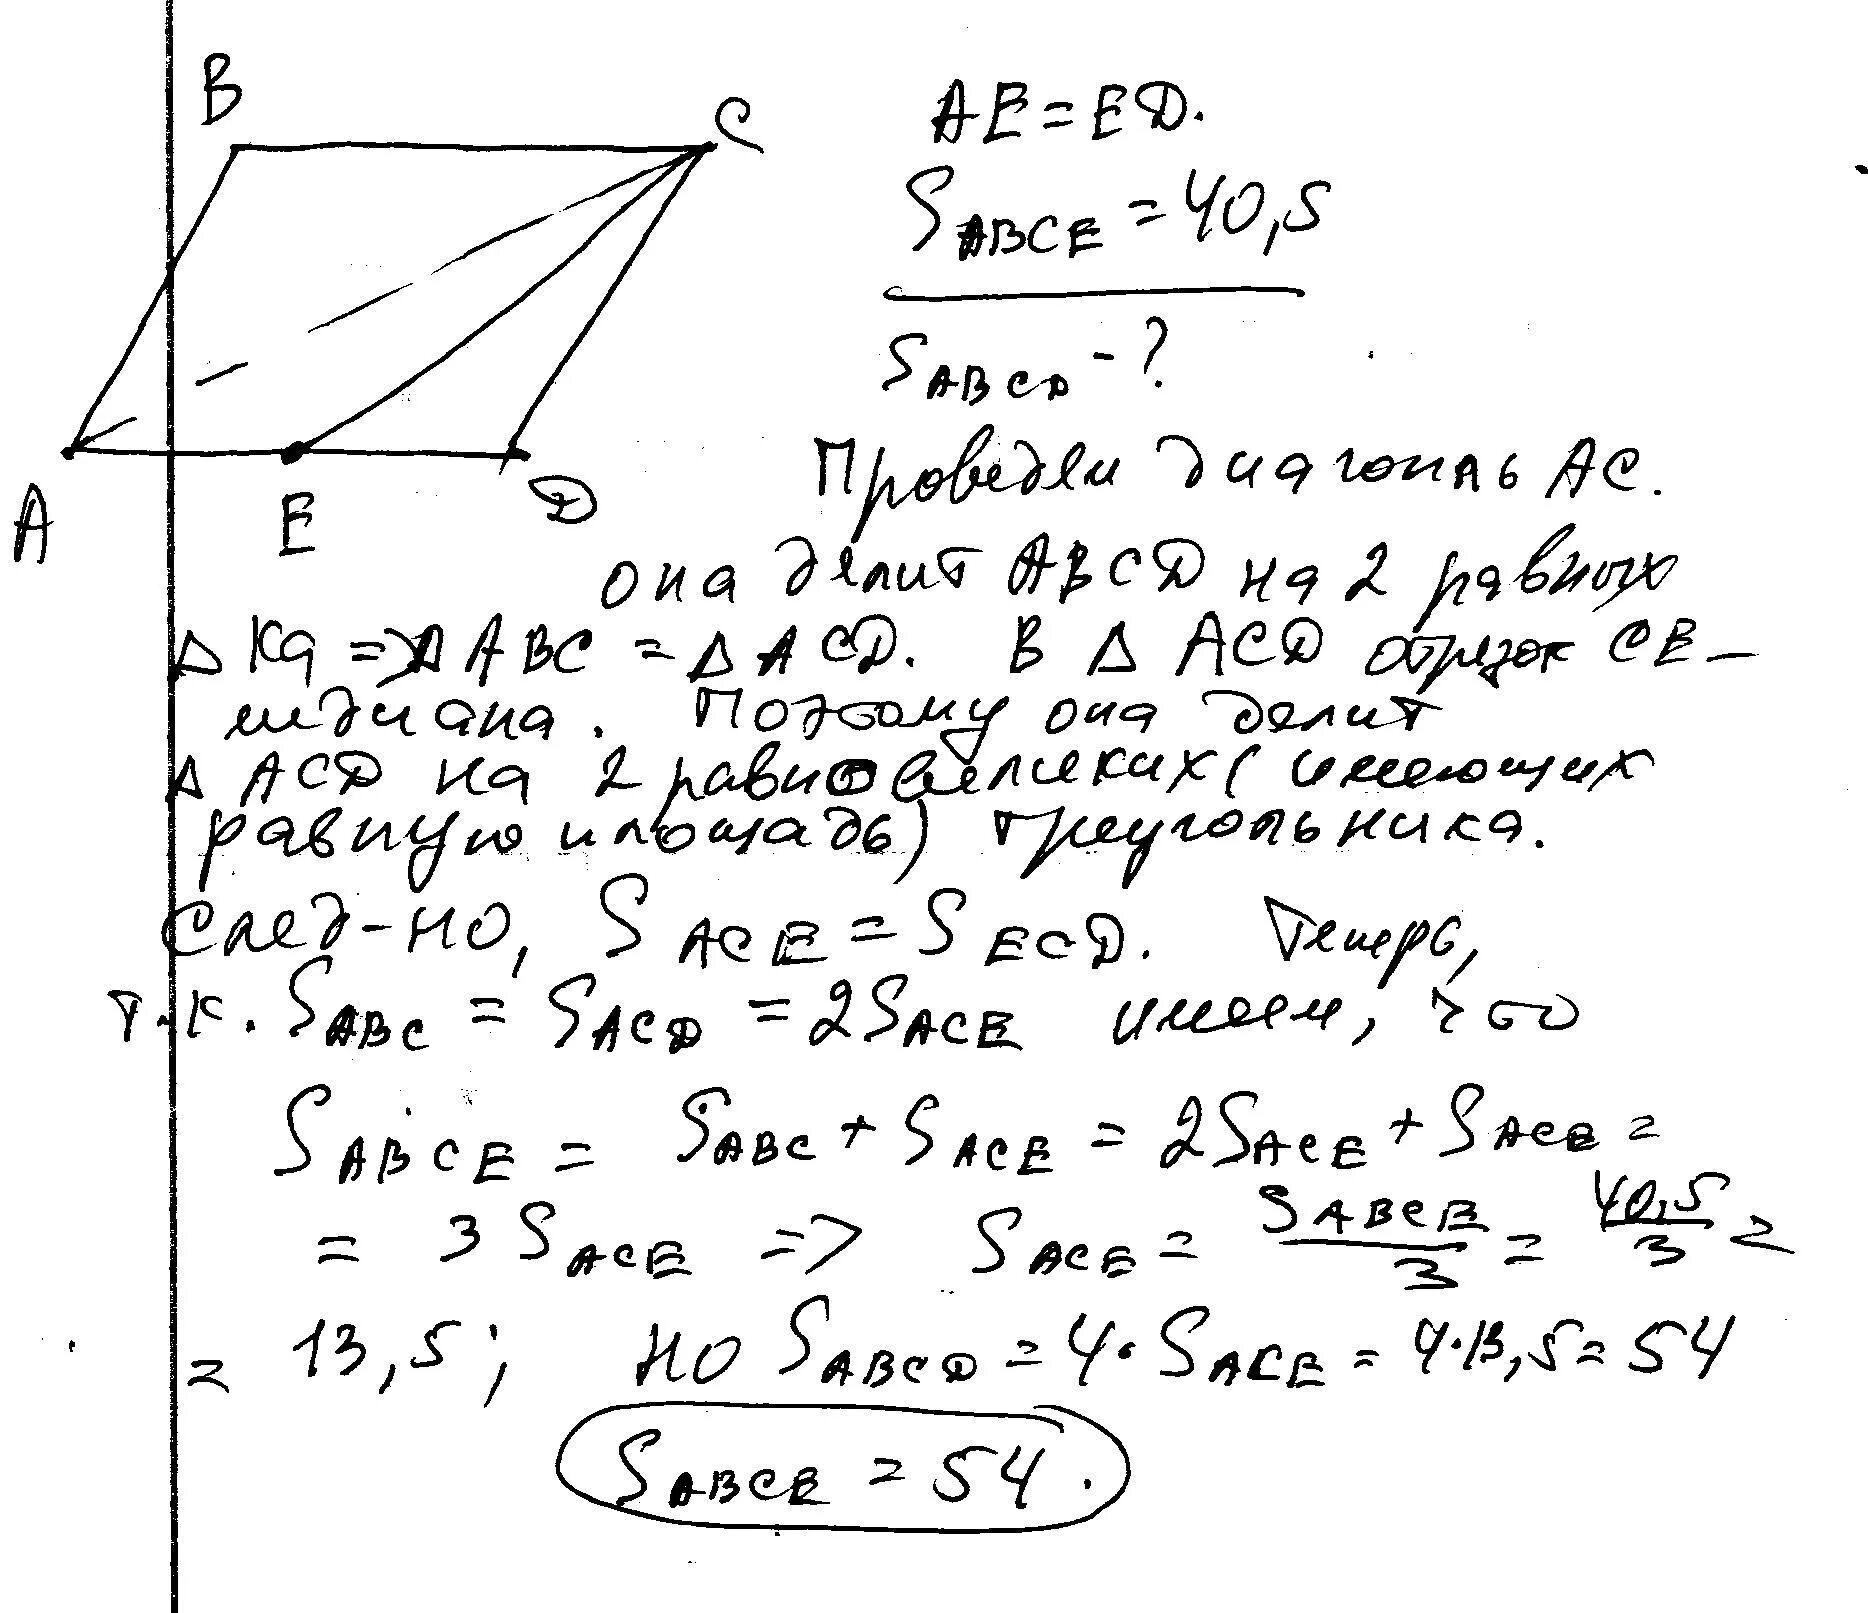 B
C
A
E
D
AE = ED.
S ABCE = 40,5
S ABCD - ?
Проведём диагональ AC.
она делит ABCD на 2 равных
Δ ка => Δ ABC = Δ ACD. В Δ ACD отрезок CE –
медиана. Поэтому она делит
Δ ACD на 2 равновеликих (имеющих
равную площадь) треугольника.
След-но, S ACE = S ECD. Теперь,
т.к. S ABC = S ACD = 2S ACE имеем, что
S ABCE = S ABC + S ACE = 2S ACE + S ACE =
= 3 S ACE => S ACE = S ABCE / 3 = 40,5 / 3 =
= 13,5; но S ABCD = 4 · S ACE = 4 · 13,5 = 54
S ABCE = 54.